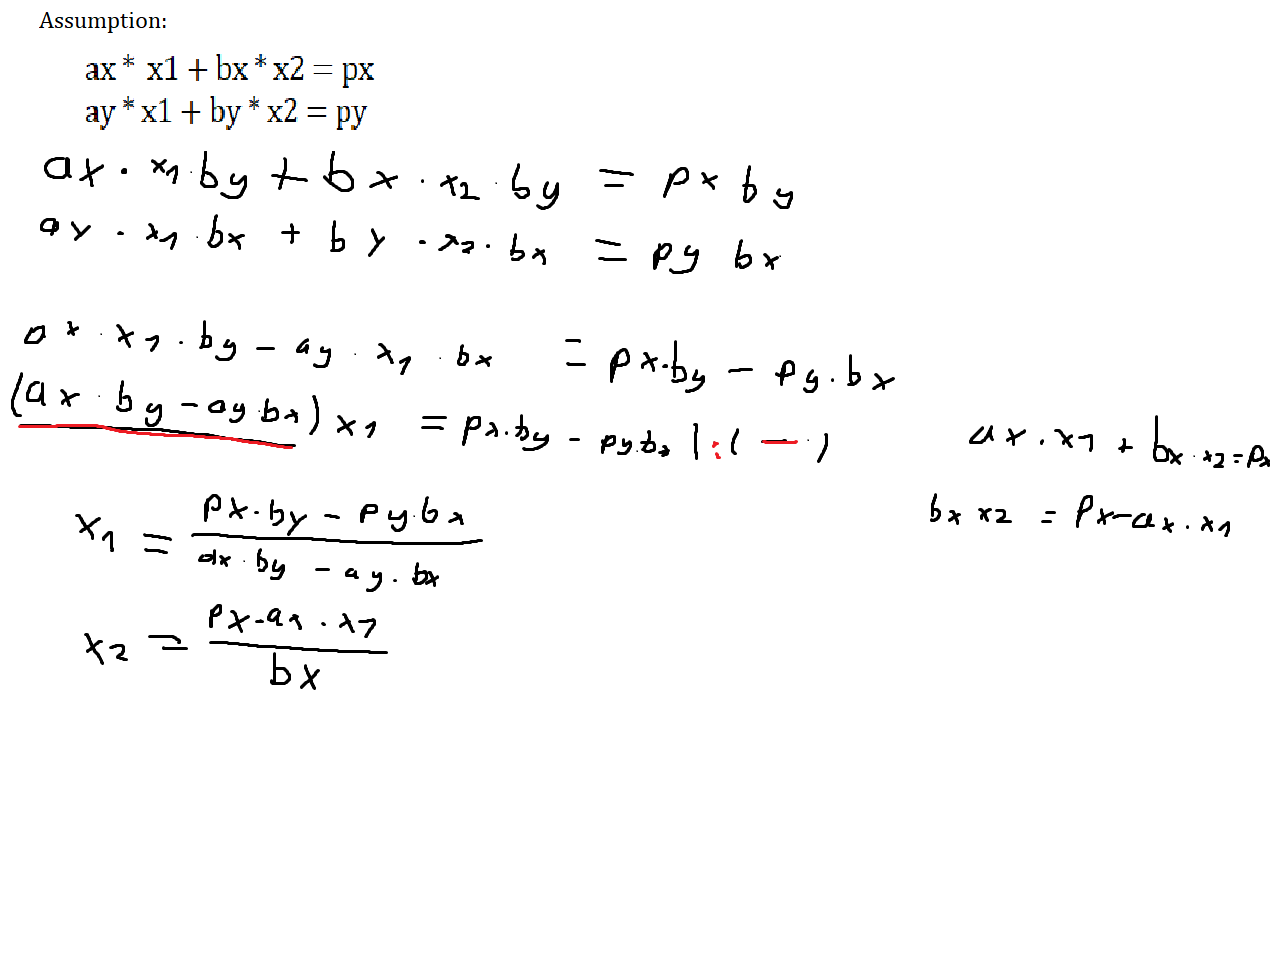 Assumption:
ax * x1 + bx * x2 = px
ay * x1 + by * x2 = py
ax · x1 · by + bx · x2 · by = px by
ay · x1 · bx + by · x2 · bx = py bx
ax · x1 · by - ay · x1 · bx = px·by - py·bx
(ax · by - ay·bx) x1 = px·by - py·bx | : ( — )
ax · x1 + bx · x2 = px
bx x2 = px-ax · x1
x1 = px·by - py·bx
ax · by - ay · bx
x2 = px-ax · x1
bx